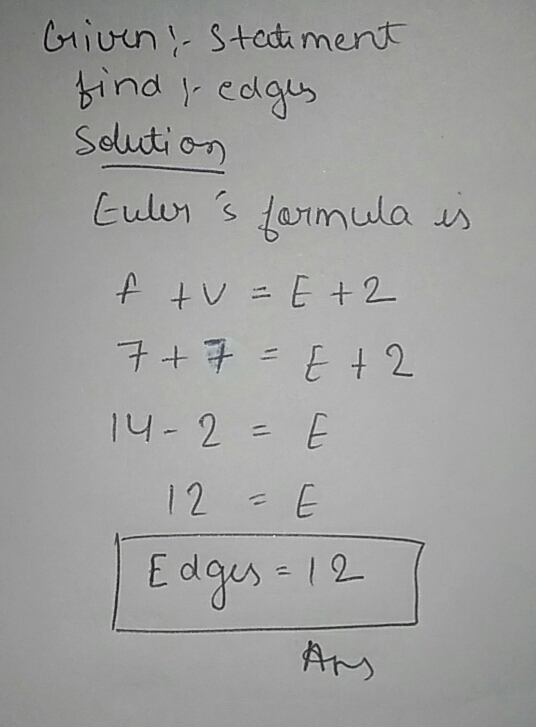 Given :- Statement
find :- edges
Solution
Euler's formula is
f + V = E + 2
7 + 7 = E + 2
14 - 2 = E
12 = E
Edges = 12
Ans